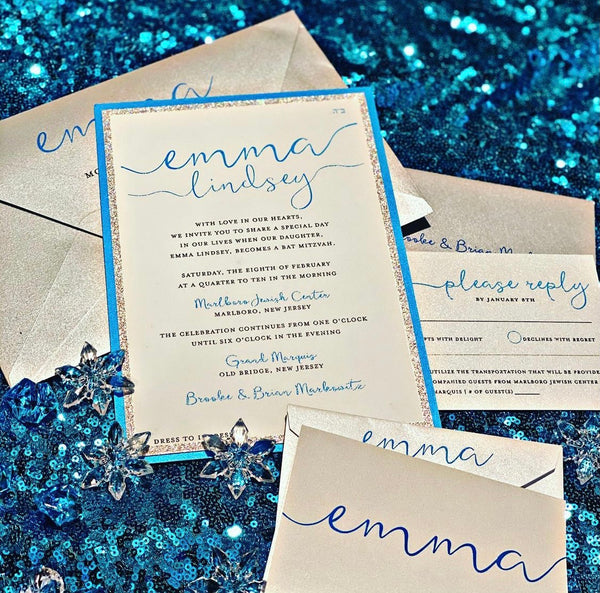 emma
MO
ב"ה
emma
lindsey
WITH LOVE IN OUR HEARTS,
WE INVITE YOU TO SHARE A SPECIAL DAY
IN OUR LIVES WHEN OUR DAUGHTER,
EMMA LINDSEY, BECOMES A BAT MITZVAH.
SATURDAY, THE EIGHTH OF FEBRUARY
AT A QUARTER TO TEN IN THE MORNING
Marlboro Jewish Center
MARLBORO, NEW JERSEY
THE CELEBRATION CONTINUES FROM ONE O'CLOCK
UNTIL SIX O'CLOCK IN THE EVENING
Grand Marquis
OLD BRIDGE, NEW JERSEY
Brooke & Brian Markowitz
DRESS TO I
Brooke & Brian Mark
please reply
BY JANUARY 8TH
PTS WITH DELIGHT DECLINES WITH REGRET
UTILIZE THE TRANSPORTATION THAT WILL BE PROVIDE
OMPANIED GUESTS FROM MARLBORO JEWISH CENTER
MARQUIS ( # OF GUESTS)
emma
emma